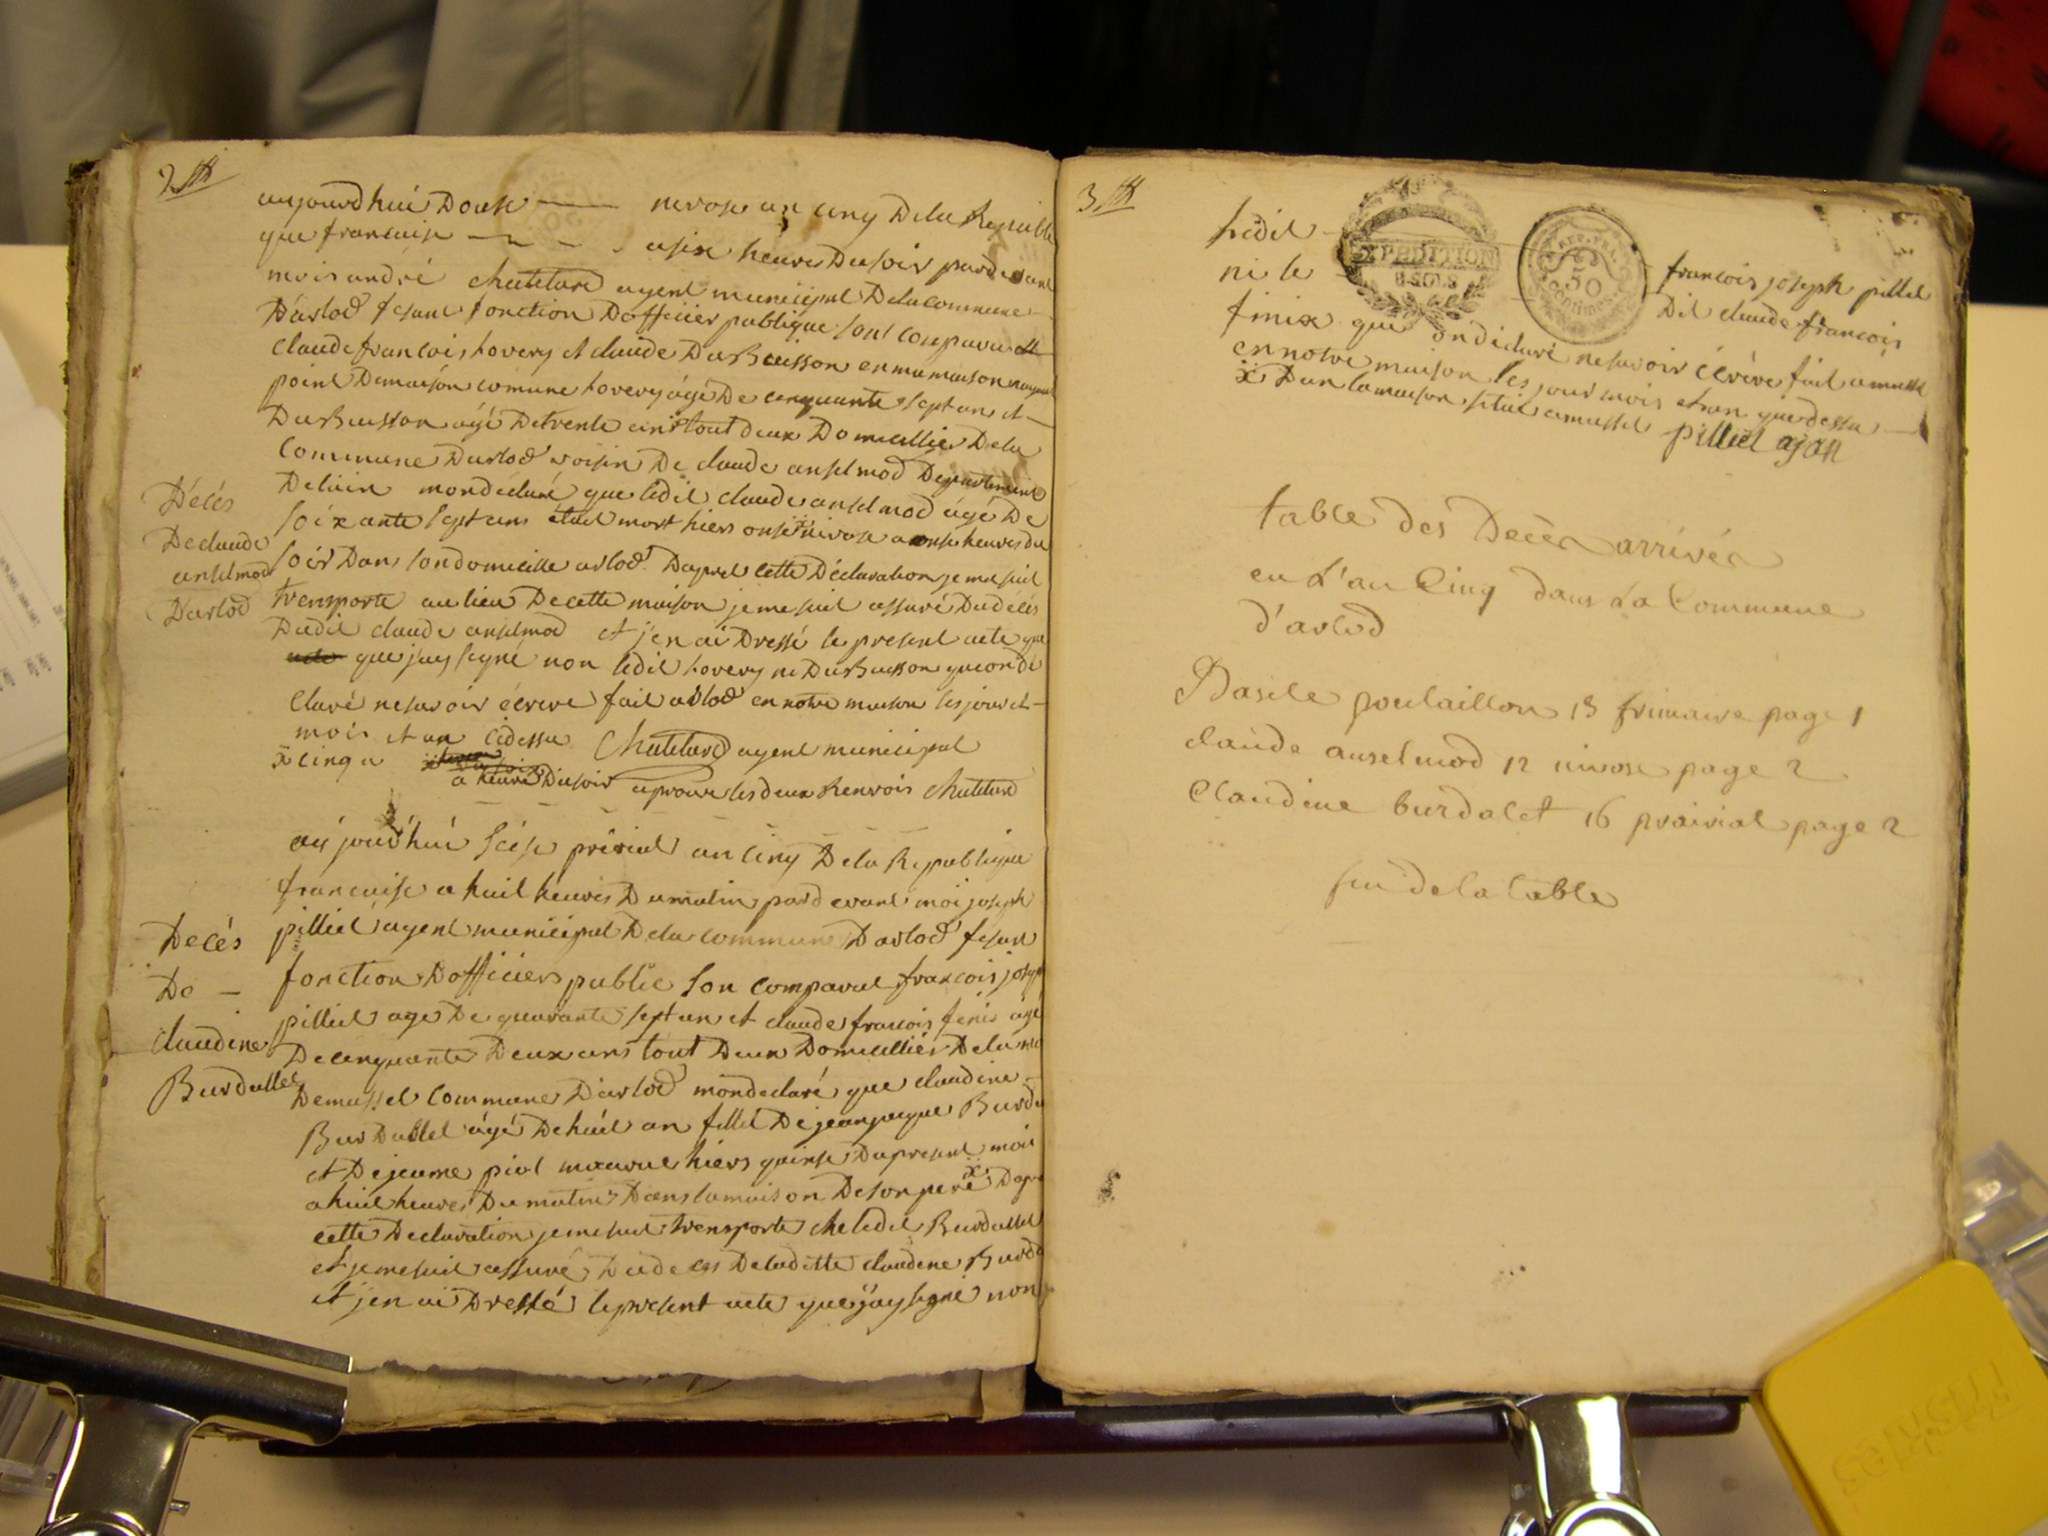 2
aujourdhui Douse nivose an cinq Dela Republi
que francaise a six heures Du soir pardevant
moi andré Chatelard agent municipal Dela commune
Darlod fesant fonction Dofficier publique sont comparu
claude francois hovery et claude DuBuisson en ma maison nayant
point De maison comune hovery âgé De cinquante sept an et
DuBuisson âgé De trente cinq tout deux Domicillies Dela
commune Darlod voisin De claude anselmod Departement
Delain mondeclaré que ledit claude anselmod âgé De
soixante sept ans etoit mort hiers onse nivose a onse heures du
soir Dans son domicille arlod Dapres cette Déclaration je me suit
trensporte au lieu De cette maison je me suit assuré Du décés
Dudit claude anselmod et jen ai Dressé le present acte
que jay signé non ledit hovery ni DuBuisson que on dé
claré ne savoir écrire fait arlod en notre maison les jour et
mois et an cidessu Chatelard agent municipal
x cinq
a heure Du soir aprouve les deux Renvois Chatelard
Décés
De claude
anselmod
Darlod
aujourdhui séise prérial an cinq Dela Republique
francaise a huit heures Du matin pard evant moi joseph
pilliet agent municipal Dela commune Darlod fesant
fonction Dofficier public son comparut francois josep
pilliet age De quarante sept an et claude francois finis âgé
De cinquante Deux ans tout Deux Domicilliés Dela
De mussel commune Darlod mondeclaré que claudine
Burdallet âgé De huit an fille De jeanjacque Burda
et De jeanne piol mourut hiers quinse Du present moi
a huit heures Du matin Dans la maison De son pere x Dapre
cette Declaration je me suit trensporte che ledit Burdallet
et je me suit assuré Du deces De laditte claudine Burda
et jen ai Dressé le present acte que jay signé non
Decés
De
claudine
Burdallet
3
ledit francois joseph pilliet
EXPEDITION
8 SOLS
50
centimes
ni le Dit claude francois
finix que on déclaré ne savoir écrire fait a mussel
en notre maison les jour mois et an que dessu
x Dan la maison situé a mussel pilliet ajan
table des Decès arrivés
en L'an Cinq dans La Commune
d'arlod
Basile poulaillon 13 frimaire page 1
claude anselmod 12 nivose page 2
Claudine burdalet 16 prairial page 2
fin de la table